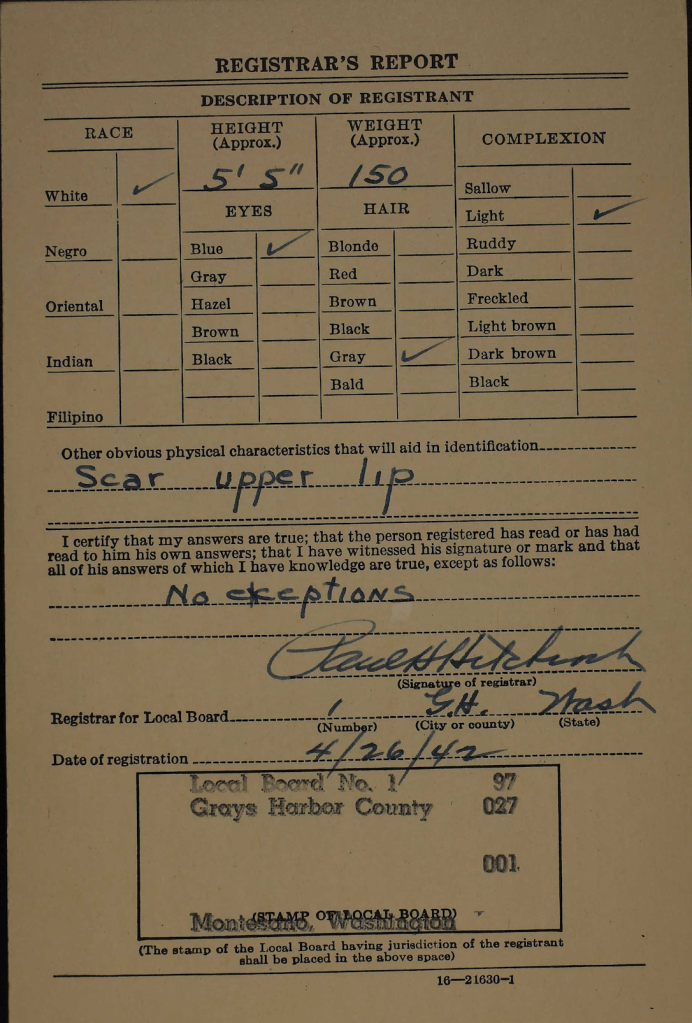 REGISTRAR'S REPORT
DESCRIPTION OF REGISTRANT
RACE HEIGHT (Approx.) WEIGHT (Approx.) COMPLEXION
5' 5" 150
White ✓ Sallow
EYES HAIR Light ✓
Negro Blue ✓ Blonde Ruddy
Gray Red Dark
Oriental Hazel Brown Freckled
Brown Black Light brown
Indian Black Gray ✓ Dark brown
Bald Black
Filipino
Other obvious physical characteristics that will aid in identification
Scar upper lip
I certify that my answers are true; that the person registered has read or has had
read to him his own answers; that I have witnessed his signature or mark and that
all of his answers of which I have knowledge are true, except as follows:
No exceptions
Paul H Hitchcock
(Signature of registrar)
Registrar for Local Board 1 G.H. Wash
(Number) (City or county) (State)
Date of registration 4/26/42
Local Board No. 1 97
Grays Harbor County 027
001
(STAMP OF LOCAL BOARD)
Montesano, Washington
(The stamp of the Local Board having jurisdiction of the registrant
shall be placed in the above space)
16—21630-1